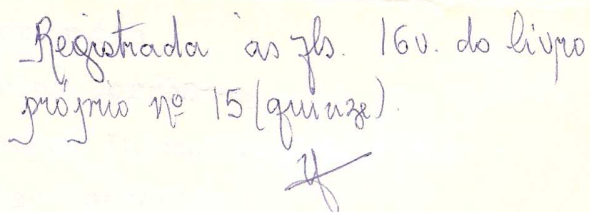 Registrada às fls. 16v. do livro
próprio nº 15 (quinze).